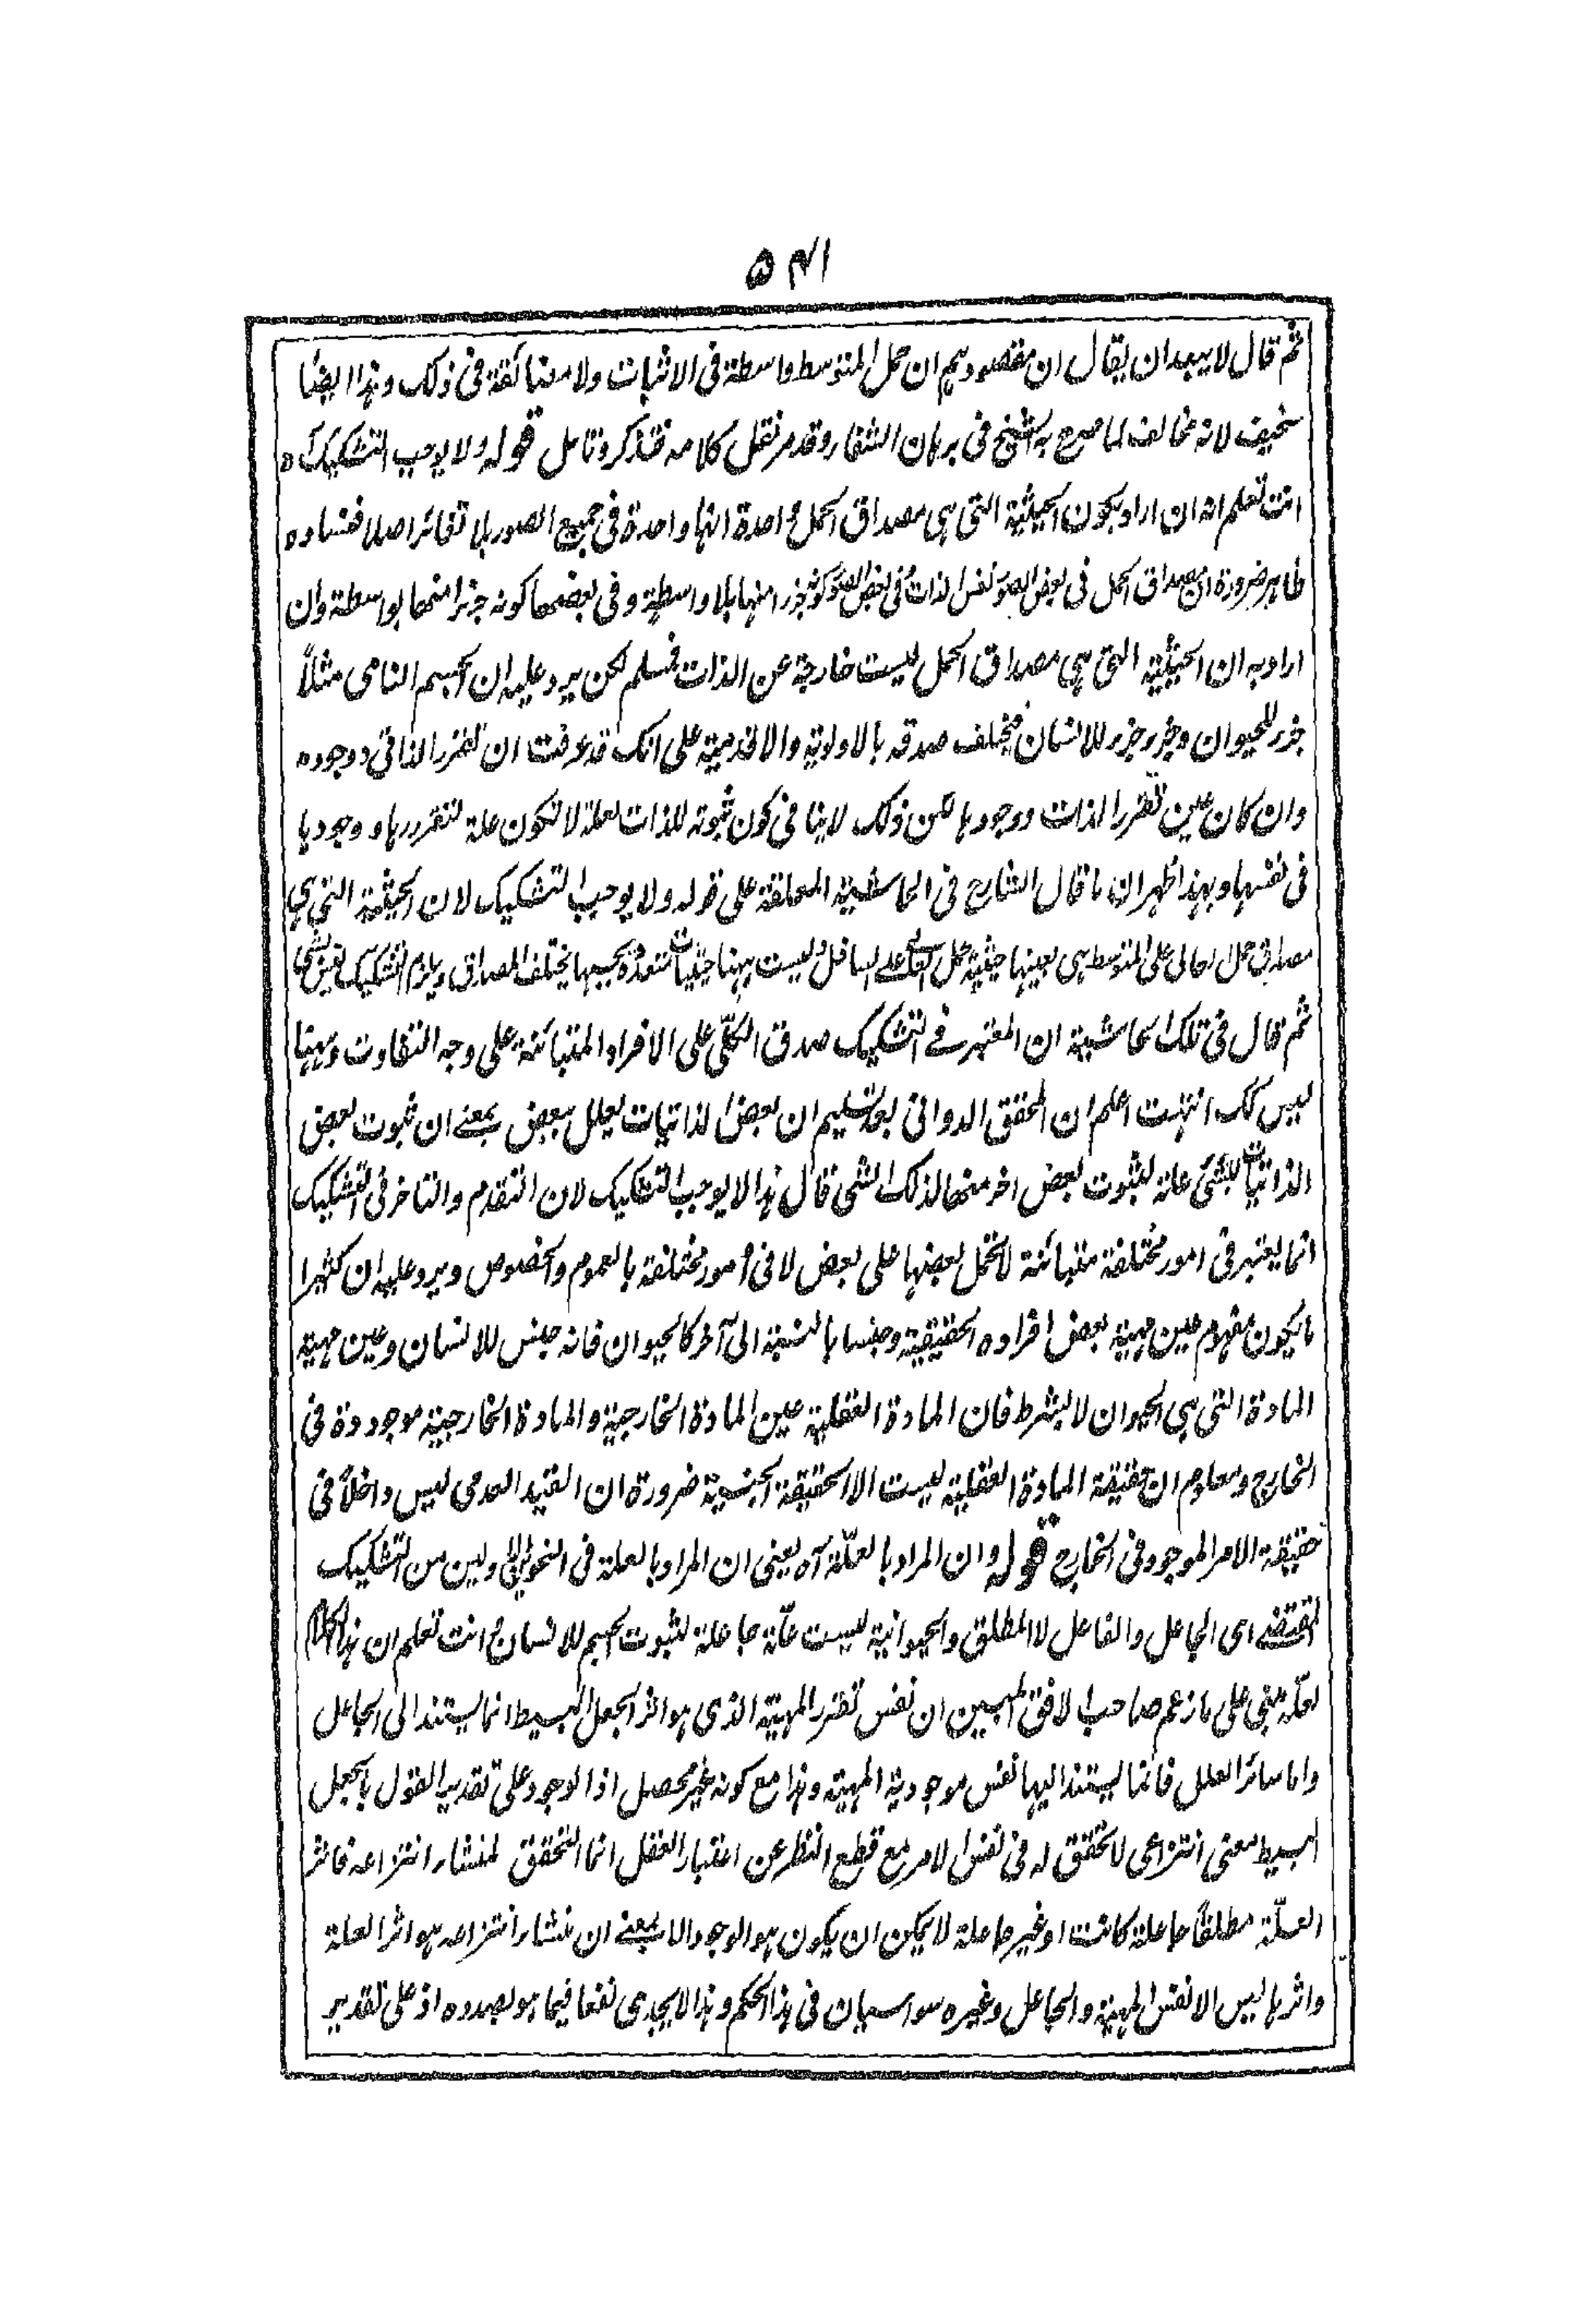 ۵۴۱
ثم قال لا يبعد ان يقال ان مقصودهم ان حمل المتوسط واسطة فى الاثبات ولا مضائقة فى ذلك وهذا ايضا
سخيف لانه مخالف لما صرح به الشيخ فى برهان الشفاء وقد مر نقل كلامه فتذكر وتامل قوله ولا يوجب التشكيك اه
انت تعلم انه ان اراد بكون الحيثية التى هى مصداق الحمل واحدة انها واحدة فى جميع الصور بلا تغائر اصلا ففساده
ظاهر ضرورة ان مصداق الحمل فى بعض الصور نفس الذات وفى بعض الصور كونه جزءا منها بلا واسطة وفى بعضها كونه جزءا منها بواسطة وان
اراد به ان الحيثية التى هى مصداق الحمل ليست خارجة عن الذات فمسلم لكن يرد عليه ان الجسم النامى مثلاً
جزء للحيوان وجزء جزء للانسان فيختلف صدقه بالاولوية والاقدمية على انك قد عرفت ان تقرر الذاتى ووجوده
وان كان عين تقرر الذات ووجودها لكن ذلك لا ينافى كون ثبوته للذات لعلة لا تكون علة لتقررها ووجودها
فى نفسها وبهذا ظهر ان ما قال الشارح فى الحاشية المعلقة على قوله ولا يوجب التشكيك لان الحيثية التى هى
مصداق حمل العالى على المتوسط هى بعينها حيثية حمل العالى على السافل وليست ههنا حيثيات متعددة بحسبها يختلف المصداق ويلزم التشكيك
ثم قال فى تلك الحاشية ان المعتبر فى التشكيك صدق الكلّى على الافراد المتبائنة على وجه التفاوت وههنا
ليس كك انتهت اعلم ان المحقق الدوانى بعد تسليم ان بعض الذاتيات يعلل ببعض بمعنى ان ثبوت بعض
الذاتيات للشئ علة لثبوت بعض اخر منها لذلك الشئ قال هذا لا يوجب التشكيك لان التقدم والتاخر فى التشكيك
انما يعتبر فى امور مختلفة متبائنة لا يحمل بعضها على بعض لا فى امور مختلفة بالعموم والخصوص ويرد عليه ان كثيرا
ما يكون مفهوم عين مهية بعض افراده الحقيقية وجنسا بالنسبة الى آخر كالحيوان فانه جنس للانسان وعين مهية
المادة التى هى الحيوان لا بشرط فان المادة العقلية عين المادة الخارجية والمادة الخارجية موجودة فى
الخارج ومعلوم ان حقيقة المادة العقلية ليست الا الحقيقة الجنسية ضرورة ان القيد العدمى ليس داخلاً فى
حقيقة الامر الموجود فى الخارج قوله وان المراد بالعلّة آه يعنى ان المراد بالعلة فى النحو الاولين من التشكيك
المقتضى اى الجاعل والفاعل لا المطلق والحيوانية ليست علّة جاعلة لثبوت الجسم للانسان وانت تعلم ان هذا الكلام
لعله مبنى على ما زعم صاحب الافق المبين ان نفس تقرر المهية الذى هو اثر الجعل البسيط انما يستند الى الجاعل
واما سائر العلل فانما يستند اليها نفس موجودية المهية وهذا مع كونه غير محصل اذ الوجود على تقدير القول بالجعل
البسيط معنى انتزاعى لا تحقق له فى نفس الامر مع قطع النظر عن اعتبار العقل انما التحقق لمنشاء انتزاعه فاثر
العلّة مطلقاً جاعلة كانت او غير جاعلة لا يمكن ان يكون هو الوجود الا بمعنى ان منشاء انتزاعه هو اثر العلة
واثرها ليس الا نفس المهية والجاعل وغيره سواسيان فى هذا الحكم وهذا لا يجدى نفعا فيما هو بصدده اذ على تقدير